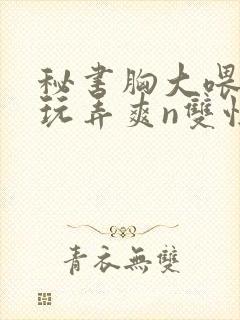 秘书胸大喂
玩弄爽n雙性
青衣無雙